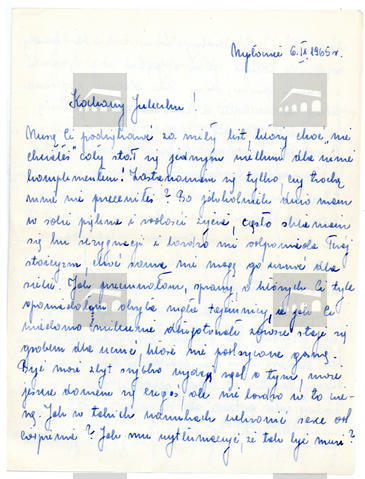 Mysłowice 6.IX 1965 r.
Kochany Juleczku!
Muszę Ci podziękować za miły list, który choć "nie
chciałeś" cały stał się jednym wielkim dla mnie
komplementem! Zastanawiam się tylko, czy trochę
mnie nie przeceniłeś? Bo jakkolwiek dużo mam
w sobie piękna i radości życia, często skłaniam
się ku rezygnacji i bardzo mi odpowiada Twój
stoicyzm, choć sama nie mogę go unieść dla
siebie! Jak pisałam, sprawy o których Ci tyle
opowiadałam okryła mgła tajemnicy, a jak Ci
wiadomo milczenie długotrwałe zawsze staje się
grobem dla uczuć, które nie podsycane gasną.
Być może zbyt szybko wydaję sąd o tym, może
jeszcze doznam się czegoś ale nie bardzo w to wie-
rzę. Jak w takich warunkach uchronić serce od
cierpienia? Jak mu wytłumaczyć, że tak być musi?